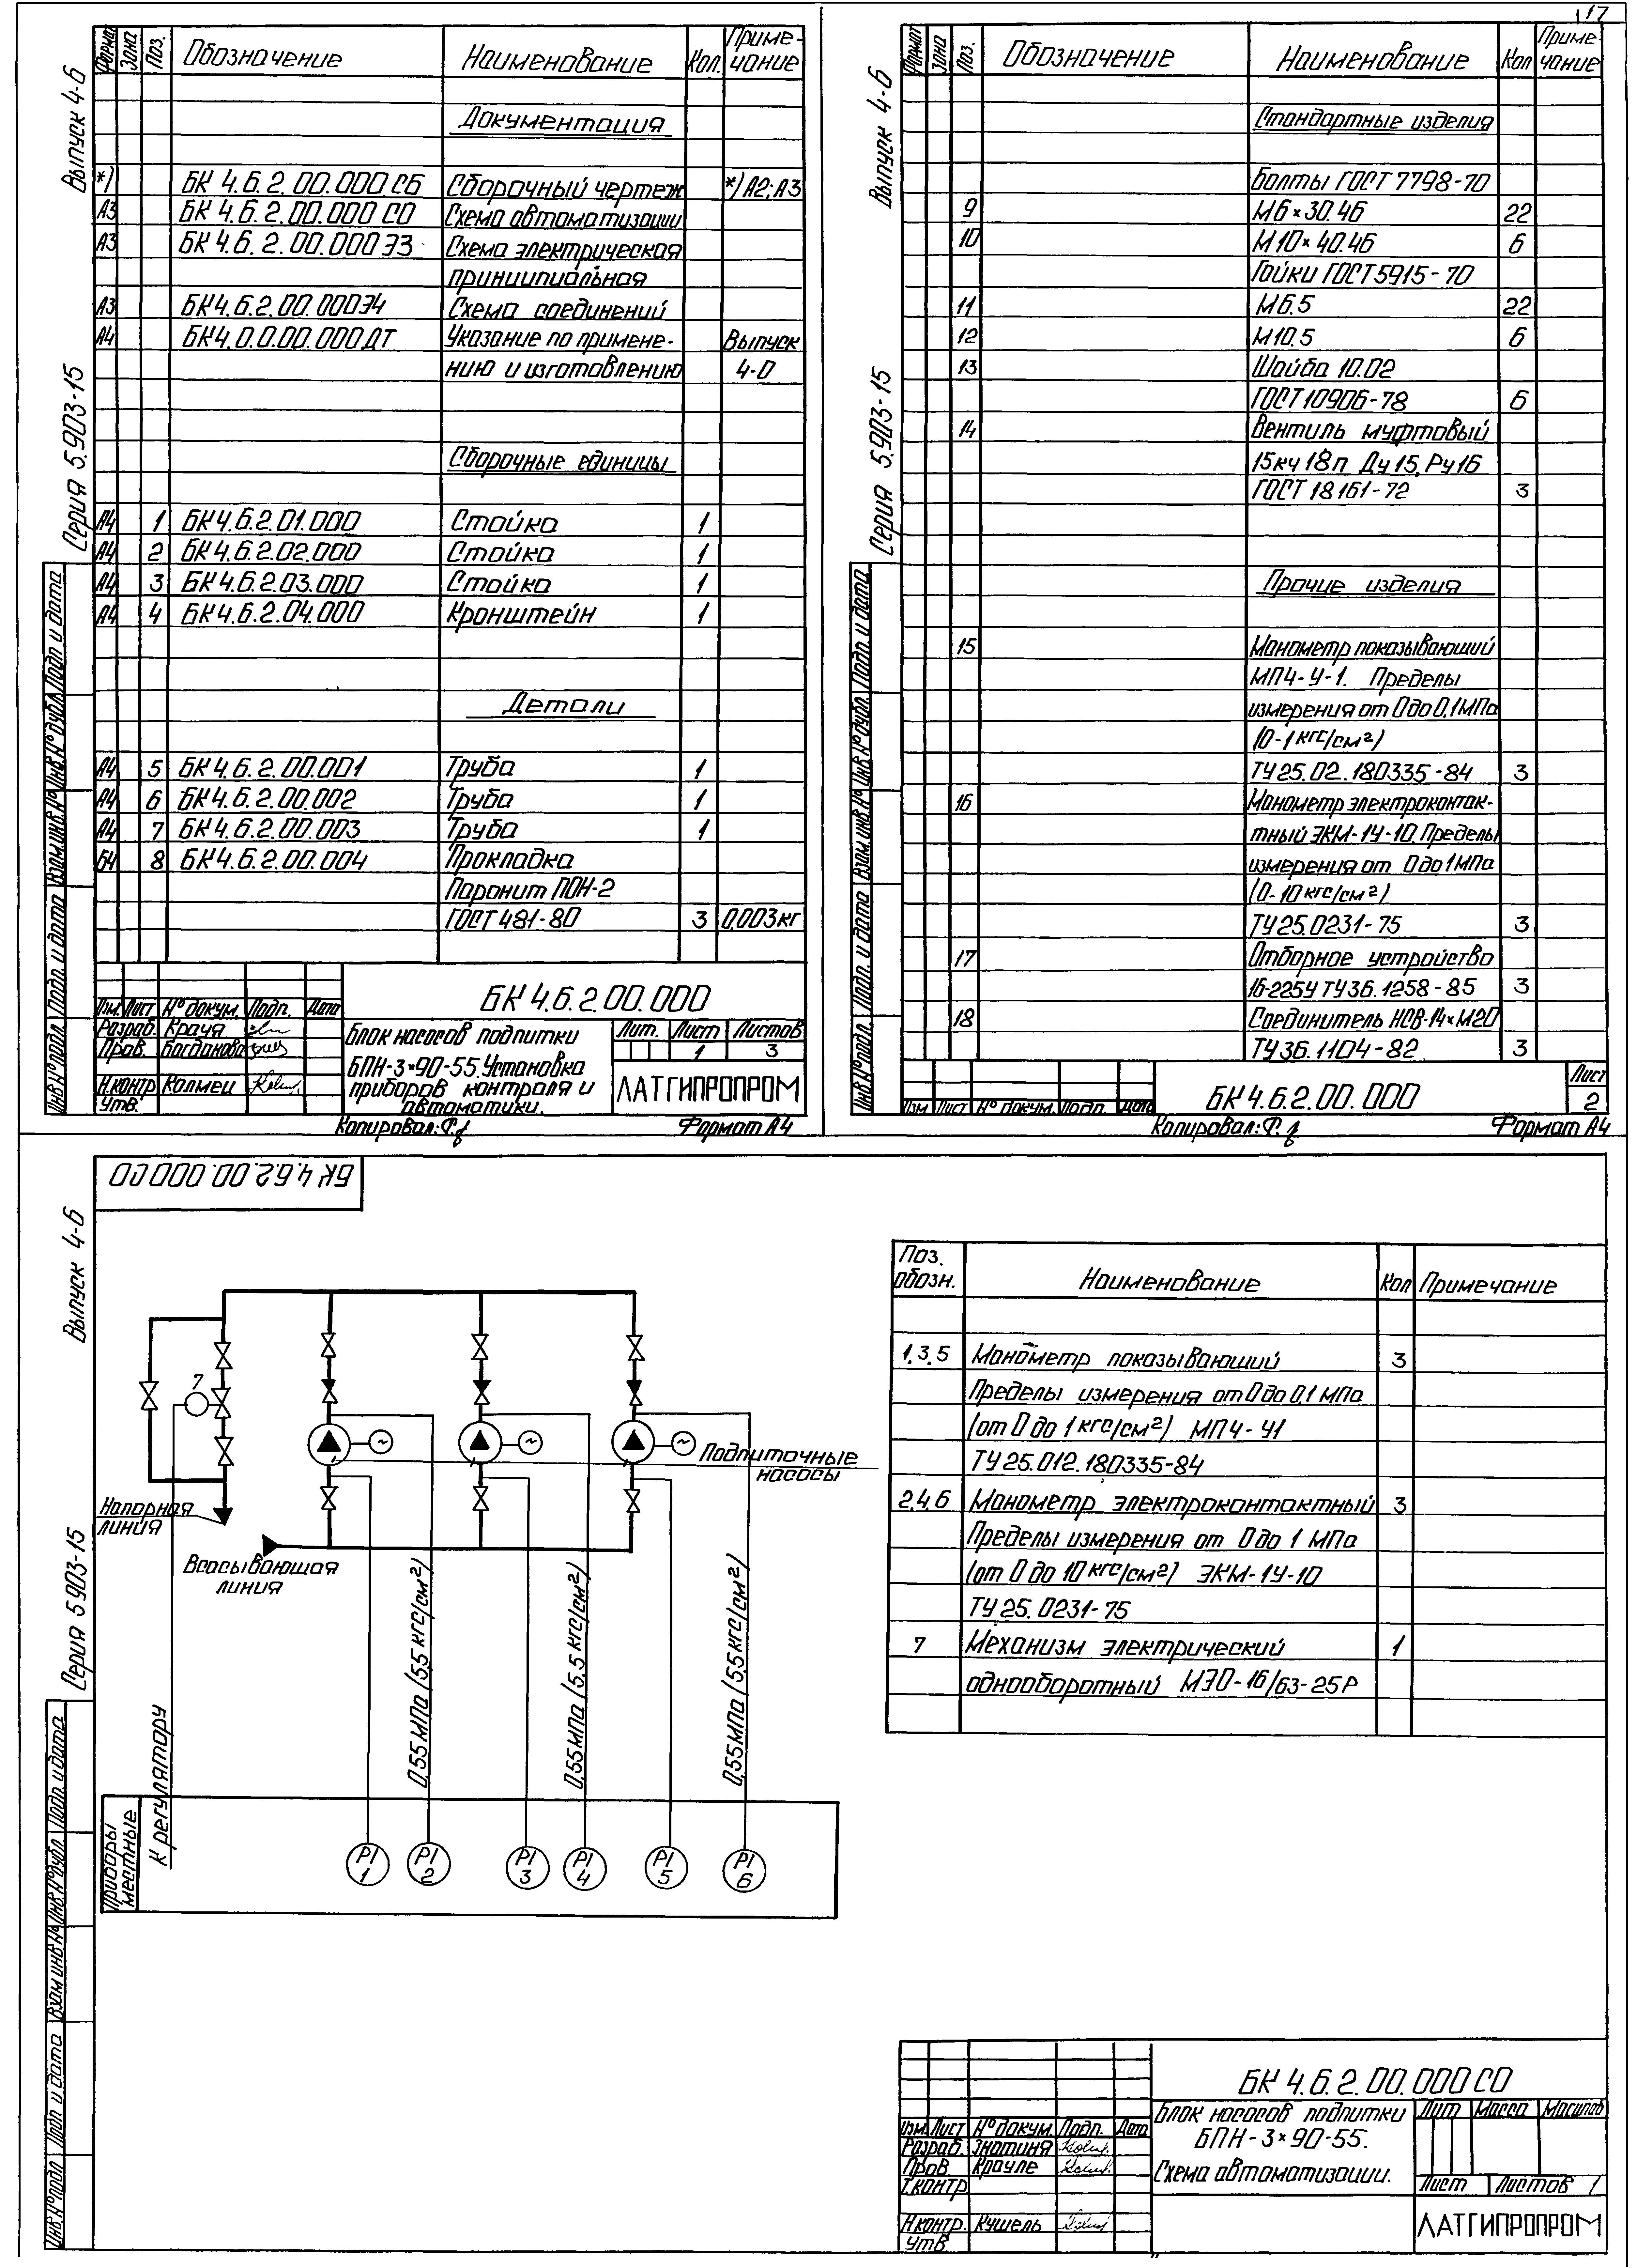 17
Выпуск 4-6
Серия 5.903-15
Формат Зона Поз. Обозначение Наименование Кол. Приме-чание
Документация
*) БК 4.6.2.00.000 СБ Сборочный чертеж *) А2; А3
А3 БК 4.6.2.00.000 СО Схема автоматизации
А3 БК 4.6.2.00.000 Э3 Схема электрическая
принципиальная
А3 БК 4.6.2.00.000 Э4 Схема соединений
А4 БК 4.0.0.00.000 ДТ Указание по примене- Выпуск
нию и изготовлению 4-0
Сборочные единицы
А4 1 БК 4.6.2.01.000 Стойка 1
А4 2 БК 4.6.2.02.000 Стойка 1
А4 3 БК 4.6.2.03.000 Стойка 1
А4 4 БК 4.6.2.04.000 Кронштейн 1
Детали
А4 5 БК 4.6.2.00.001 Труба 1
А4 6 БК 4.6.2.00.002 Труба 1
А4 7 БК 4.6.2.00.003 Труба 1
Б4 8 БК 4.6.2.00.004 Прокладка
Паронит ПОН-2
ГОСТ 481-80 3 0,003 кг
Инв.№ подл. Подп. и дата Взам.инв.№ Инв.№ дубл. Подп. и дата
БК 4.6.2.00.000
Изм. Лист № докум. Подп. Дата
Разраб. Крауя
Пров. Богданова
Н.контр Калмец
Утв.
Блок насосов подпитки
БПН-3×90-55. Установка
приборов контроля и
автоматики.
Лит. Лист Листов
1 3
ЛАТГИПРОПРОМ
Копировал: Формат А4
Выпуск 4-6
Серия 5.903-15
Формат Зона Поз. Обозначение Наименование Кол Приме-чание
Стандартные изделия
Болты ГОСТ 7798-70
9 М6×30.46 22
10 М10×40.46 6
Гайки ГОСТ 5915-70
11 М6.5 22
12 М10.5 6
13 Шайба 10.02
ГОСТ 10906-78 6
14 Вентиль муфтовый
15кч 18п Ду 15, Ру 16
ГОСТ 18161-72 3
Прочие изделия
15 Манометр показывающий
МП4-У-1. Пределы
измерения от 0 до 0,1 МПа
(0-1 кгс/см²)
ТУ 25.02.180335-84 3
16 Манометр электроконтак-
тный ЭКМ-1У-10. Пределы
измерения от 0 до 1 МПа
(0-10 кгс/см²)
ТУ 25.0231-75 3
17 Отборное устройство
16-225У ТУ 36.1258-85 3
18 Соединитель НСВ-14×М20
ТУ 36.1104-82 3
Инв.№ подл. Подп. и дата Взам.инв.№ Инв.№ дубл. Подп. и дата
Изм Лист № докум. Подп. Дата
БК 4.6.2.00.000
Лист
2
Копировал: Формат А4
БК 4.6.2.00.000 СО
Выпуск 4-6
Серия 5.903-15
7
Подпиточные
насосы
Напорная
линия
Всасывающая
линия
К регулятору
0,55 МПа (5,5 кгс/см²)
0,55 МПа (5,5 кгс/см²)
0,55 МПа (5,5 кгс/см²)
Приборы
местные
PI 1
PI 2
PI 3
PI 4
PI 5
PI 6
Поз. обозн. Наименование Кол Примечание
1,3,5 Манометр показывающий 3
Пределы измерения от 0 до 0,1 МПа
(от 0 до 1 кгс/см²) МП4-У1
ТУ 25.012.180335-84
2,4,6 Манометр электроконтактный 3
Пределы измерения от 0 до 1 МПа
(от 0 до 10 кгс/см²) ЭКМ-1У-10
ТУ 25.0231-75
7 Механизм электрический 1
однооборотный МЭО-16/63-25Р
Инв.№ подл Подп и дата Взам инв.№ Инв.№ дубл Подп. и дата
БК 4.6.2.00.000 СО
Изм. Лист № докум. Подп. Дата
Разраб. Знотиня
Пров Крауле
Т.контр
Н.контр. Кушель
Утв.
Блок насосов подпитки
БПН-3×90-55.
Схема автоматизации.
Лит Масса Масштаб
Лист Листов 1
ЛАТГИПРОПРОМ